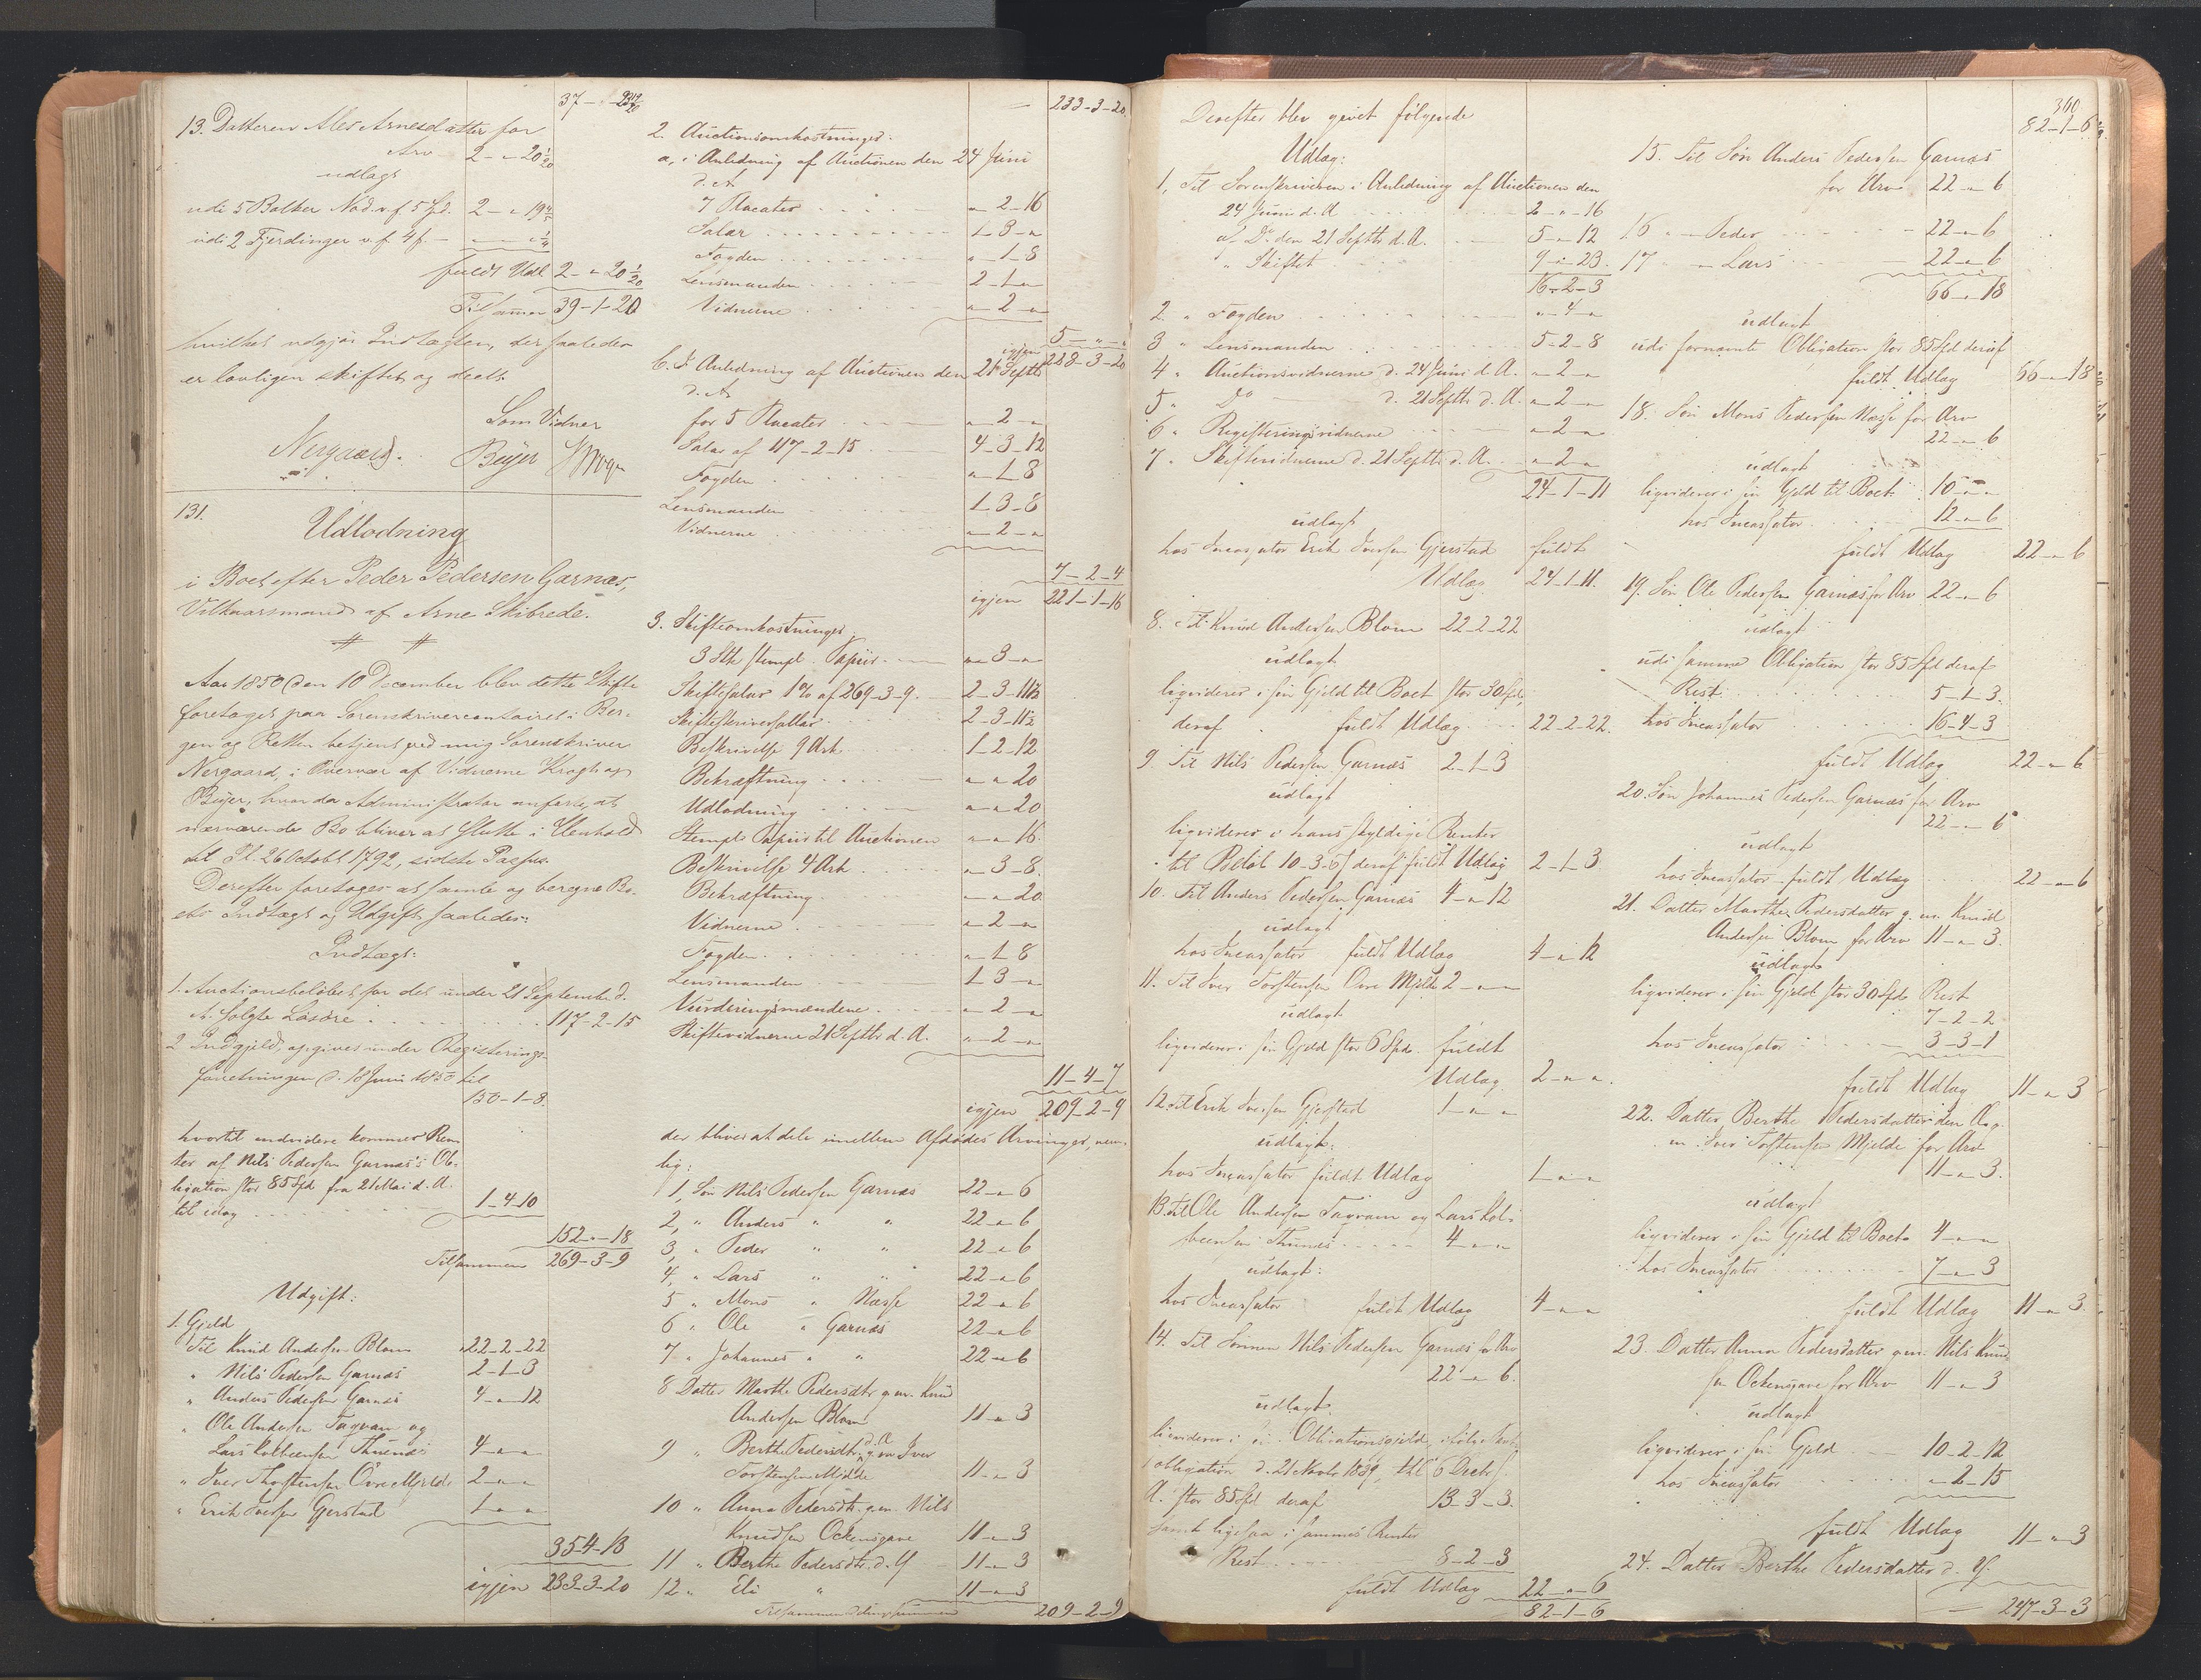 37 -
13. Datteren Ales Arnesdatter for
Arv 2 - " 20 1/20
udlagt
udi 5 Bolker No d. v. f. 5 Spd. 2 - " 19
udi 2 Fjerdinger v. f. 4 f.
fuldt Udl. 2 - " 20 1/20
Tilsammen 39 - 1 - 20
hvilket udgjør Indtægten, der saaledes
er lovligen skiftet og deelt.
Som Vidner
Nergaard. Beyer Krogh
131.
Udlodning
i Boet efter Peder Pedersen Garnæs,
Vilkaarsmand af Arne Skibrede.
Aar 1850 den 10 December blev dette Skifte
foretaget paa Sorenskrivercontoiret i Ber-
gen og Retten betjent ved mig Sorenskriver
Nergaard, i Overvær af Vidnerne Krogh og
Beyer, hvor da Administrator anførte, at
nærværende Bo bliver at slutte i Henhold
til Pl. 26 Octobr 1792, sidste Passus.
Derefter foretoges at samle og beregne Bo-
ets Indtægt og Udgift saaledes:
Indtægt:
1. Auctionsbeløbet for det under 21 September d.
A. solgte Løsøre 117 - 2 - 15
2 Indgjeld, opgivet under Registerings-
forretningen d. 18 Juni 1850 til
150 - 1 - 8
hvortil endvidere kommer Ren-
ter af Nils Pedersen Garnæs's Ob-
ligation stor 85 Spd fra 21 Mai d. A.
til idag 1 - 4 - 10
152 - " - 18
Tilsammen 269 - 3 - 9
Udgift:
1. Gjeld
Til Knud Andersen Blom 22 - 2 - 22
" Nils Pedersen Garnæs 2 - 1 - 3
" Anders Pedersen Garnæs 4 - " - 12
" Ole Andersen Tagvam og
Lars Kolbeensen Thunes 4 - " - "
" Iver Thorstensen Øvre Mjelde 2 - " - "
" Erik Iversen Gjerstad 1 - " - "
35 - 4 - 13
igjen 233 - 3 - 20
233 - 3 - 20
2. Auctionsomkostninger.
a, i Anledning af Auctionen den 24 Juni
d. A.
7 Placater " - 2 - 16
Salær 1 - 3 - "
Fogden " - 1 - 8
Lensmanden 2 - 1 - "
Vidnerne " - 2 - "
5 - " - "
igjen 228 - 3 - 20
b. I Anledning af Auctionen den 21 Septbr
d. A.
for 5 Placater " - 2 - "
Salær af 117 - 2 - 15 4 - 3 - 12
Fogden " - 1 - 8
Lensmanden 1 - 3 - 8
Vidnerne " - 2 - "
7 - 2 - 4
igjen 221 - 1 - 16
3. Skifteomkostninger
3 Stk stempl. Papiir " - 3 - "
Skiftesalær 1 % af 269 - 3 - 9 2 - 3 - 11½
Skifteskriversallær 2 - 3 - 11½
Beskrivelse 9 Ark 1 - 2 - 12
Bekræftning " - " - 20
Udlodning " - " - 20
Stemplt Papiir til Auctionen " - " - 16
Beskrivelse 4 Ark " - 3 - 8
Bekræftning " - " - 20
Vidnerne " - 2 - "
Fogden " - 1 - 8
Lensmanden 1 - 3 - "
Vurderingsmændene " - 2 - "
Skiftevidnerne 21 Septbr d. A. " - 2 - "
11 - 4 - 7
igjen 209 - 2 - 9
der bliver at dele imellem Afdødes Arvinger, nem-
lig:
1, Søn Nils Pedersen Garnæs 22 - " - 6
2, " Anders " " 22 - " - 6
3, " Peder " " 22 - " - 6
4, " Lars " " 22 - " - 6
5 " Mons " Næsse 22 - " - 6
6 " Ole " Garnæs 22 - " - 6
7 " Johannes " " 22 - " - 6
8 Datter Marthe Pedersdtr g. m. Knud
Andersen Blom 11 - " - 3
9 " Berthe Pedersdtr d. Æ. g. m. Iver
Torstensen Mjelde 11 - " - 3
10 " Anna Pedersdtr g. m. Nils
Knudsen Ockensgave 11 - " - 3
11 " Berthe Pedersdtr d. Y. 11 - " - 3
12 " Eli " 11 - " - 3
Tilsammen Delingssummen 209 - 2 - 9
Derefter blev gjort følgende
Udlæg:
1, Til Sorenskriveren i Anledning af Auctionen den
24 Juni d. A. 2 - " - 16
af Do den 21 Septbr d. A. 5 - " - 12
" Skiftet 9 - " - 23
16 - 2 - 3
2. " Fogden " - 4 - "
3 " Lensmanden 5 - 2 - 8
4 " Auctionsvidnerne d. 24 Juni d. A. " - 2 - "
5 " Do d. 21 Septbr d. A. " - 2 - "
6 " Registeringsvidnerne " - 2 - "
7 " Skiftevidnerne d. 21 Septbr d. A. " - 2 - "
24 - 1 - 11
udlagt
hos Incassator Erik Iversen Gjerstad fuldt
Udlæg 24 - 1 - 11.
8. Til Knud Andersen Blom 22 - 2 - 22
udlagt
ligviderer i sin Gjeld til Boet stor 30 Spd,
deraf fuldt Udlæg 22 - 2 - 22.
9 Til Nils Pedersen Garnæs 2 - 1 - 3
udlagt
ligviderer i hans skyldige Renter
til Beløb 10 - 3 - 6 deraf fuldt Udlæg 2 - 1 - 3
10. Til Anders Pedersen Garnæs 4 - " - 12
udlagt
hos Incassator fuldt Udlæg 4 - " - 12
11. Til Iver Torstensen Øvre Mjelde 2 - " - "
udlagt
ligviderer i sin Gjeld stor 6 Spd. fuldt
Udlæg 2 - " - "
12. Til Erik Iversen Gjerstad 1 - " - "
udlagt:
hos Incassator fuldt Udlæg 1 - " - "
13. Til Ole Andersen Tagvam og Lars Kol-
beensen Thunes 4 - " - "
udlagt:
hos Incassator fuldt Udlæg 4 - " - "
14. Til Sønnen Nils Pedersen Garnæs for Arv
22 - " - 6.
udlagt
ligviderer i Obligationsgjeld, ifølge
obligation d. 21 Novbr 1839, thl. 6 Decbr s.
A. stor 85 Spd deraf 13 - 3 - 3.
samt ligesaa i sammes Renter
Rest 8 - 2 - 3
fuldt Udlæg 22 - " - 6
82 - 1 - 6
360.
82 - 1 - 6
15. Til Søn Anders Pedersen Garnæs
for Arv 22 - " - 6
16 " " Peder 22 - " - 6
17 " " Lars 22 - " - 6
66 - " - 18
udlagt
udi fornævnte Obligation stor 85 Spd deraf
fuldt Udlæg 66 - " - 18
18. Søn Mons Pedersen Næsse for Arv
22 - " - 6
udlagt
ligviderer i sin Gjeld til Boet 10 - " - "
hos Incassator 12 - " - 6
fuldt Udlæg 22 - " - 6
19. Søn Ole Pedersen Garnæs for Arv 22 - " - 6
udlagt
udi samme Obligation stor 85 Spd deraf
Rest 5 - 1 - 3.
hos Incassator 16 - 4 - 3
fuldt Udlæg 22 - " - 6
20. Søn Johannes Pedersen Garnæs for Arv
22 - " - 6
udlagt
hos Incassator fuldt Udlæg 22 - " - 6
21. Datter Marthe Pedersdatter g. m. Knud
Andersen Blom for Arv 11 - " - 3.
udlagt
ligviderer i sin Gjeld stor 30 Spd Rest
7 - 2 - 2
hos Incassator 3 - 3 - 1
fuldt Udlæg 11 - " - 3
22. Datter Berthe Pedersdatter den Æ. g.
m. Iver Torstensen Mjelde for Arv
11 - " - 3.
udlagt
ligviderer i sin Gjeld til Boet 4 - " - "
hos Incassator 7 - " - 3
fuldt Udlæg 11 - " - 3.
23. Datter Anna Pedersdatter g. m. Nils Knud-
sen Ockensgave for Arv 11 - " - 3
udlagt
ligviderer i sin Gjeld 10 - 2 - 12
hos Incassator " - 2 - 15
fuldt Udlæg 11 - " - 3
24. Datter Berthe Pedersdatter d. Y.
247 - 3 - 3